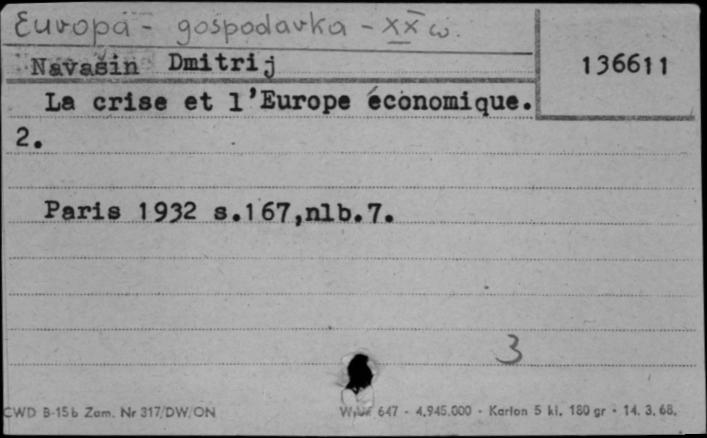 Europa - gospodarka - XX w.
Navašin Dmitrij
136611
La crise et l'Europe économique.
2.
Paris 1932 s.167,nlb.7.
3
CWD B-15b Zam. Nr 317/DW/ON
647 - 4.945.000 - Karton 5 kl. 180 gr - 14. 3. 68.